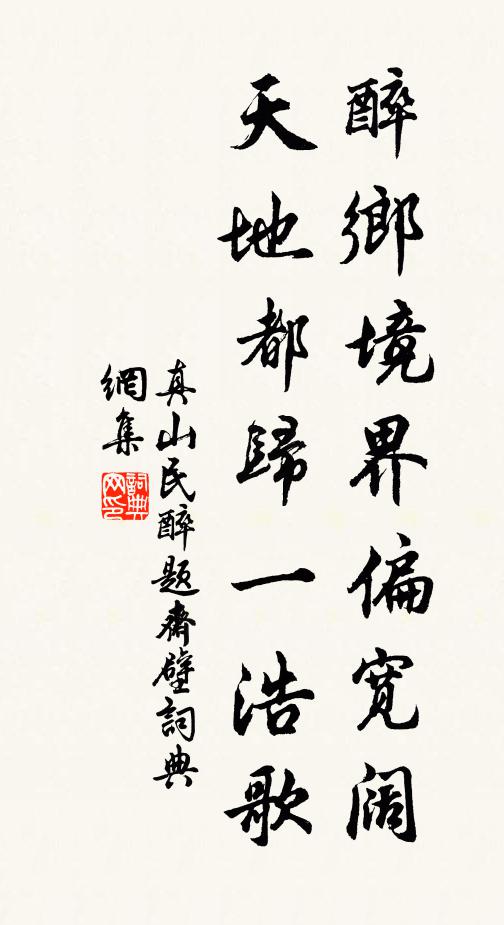 醉鄉境界偏寬闊
天地都歸一浩歌
真山民醉題齋壁詞典
網集
詞典网印